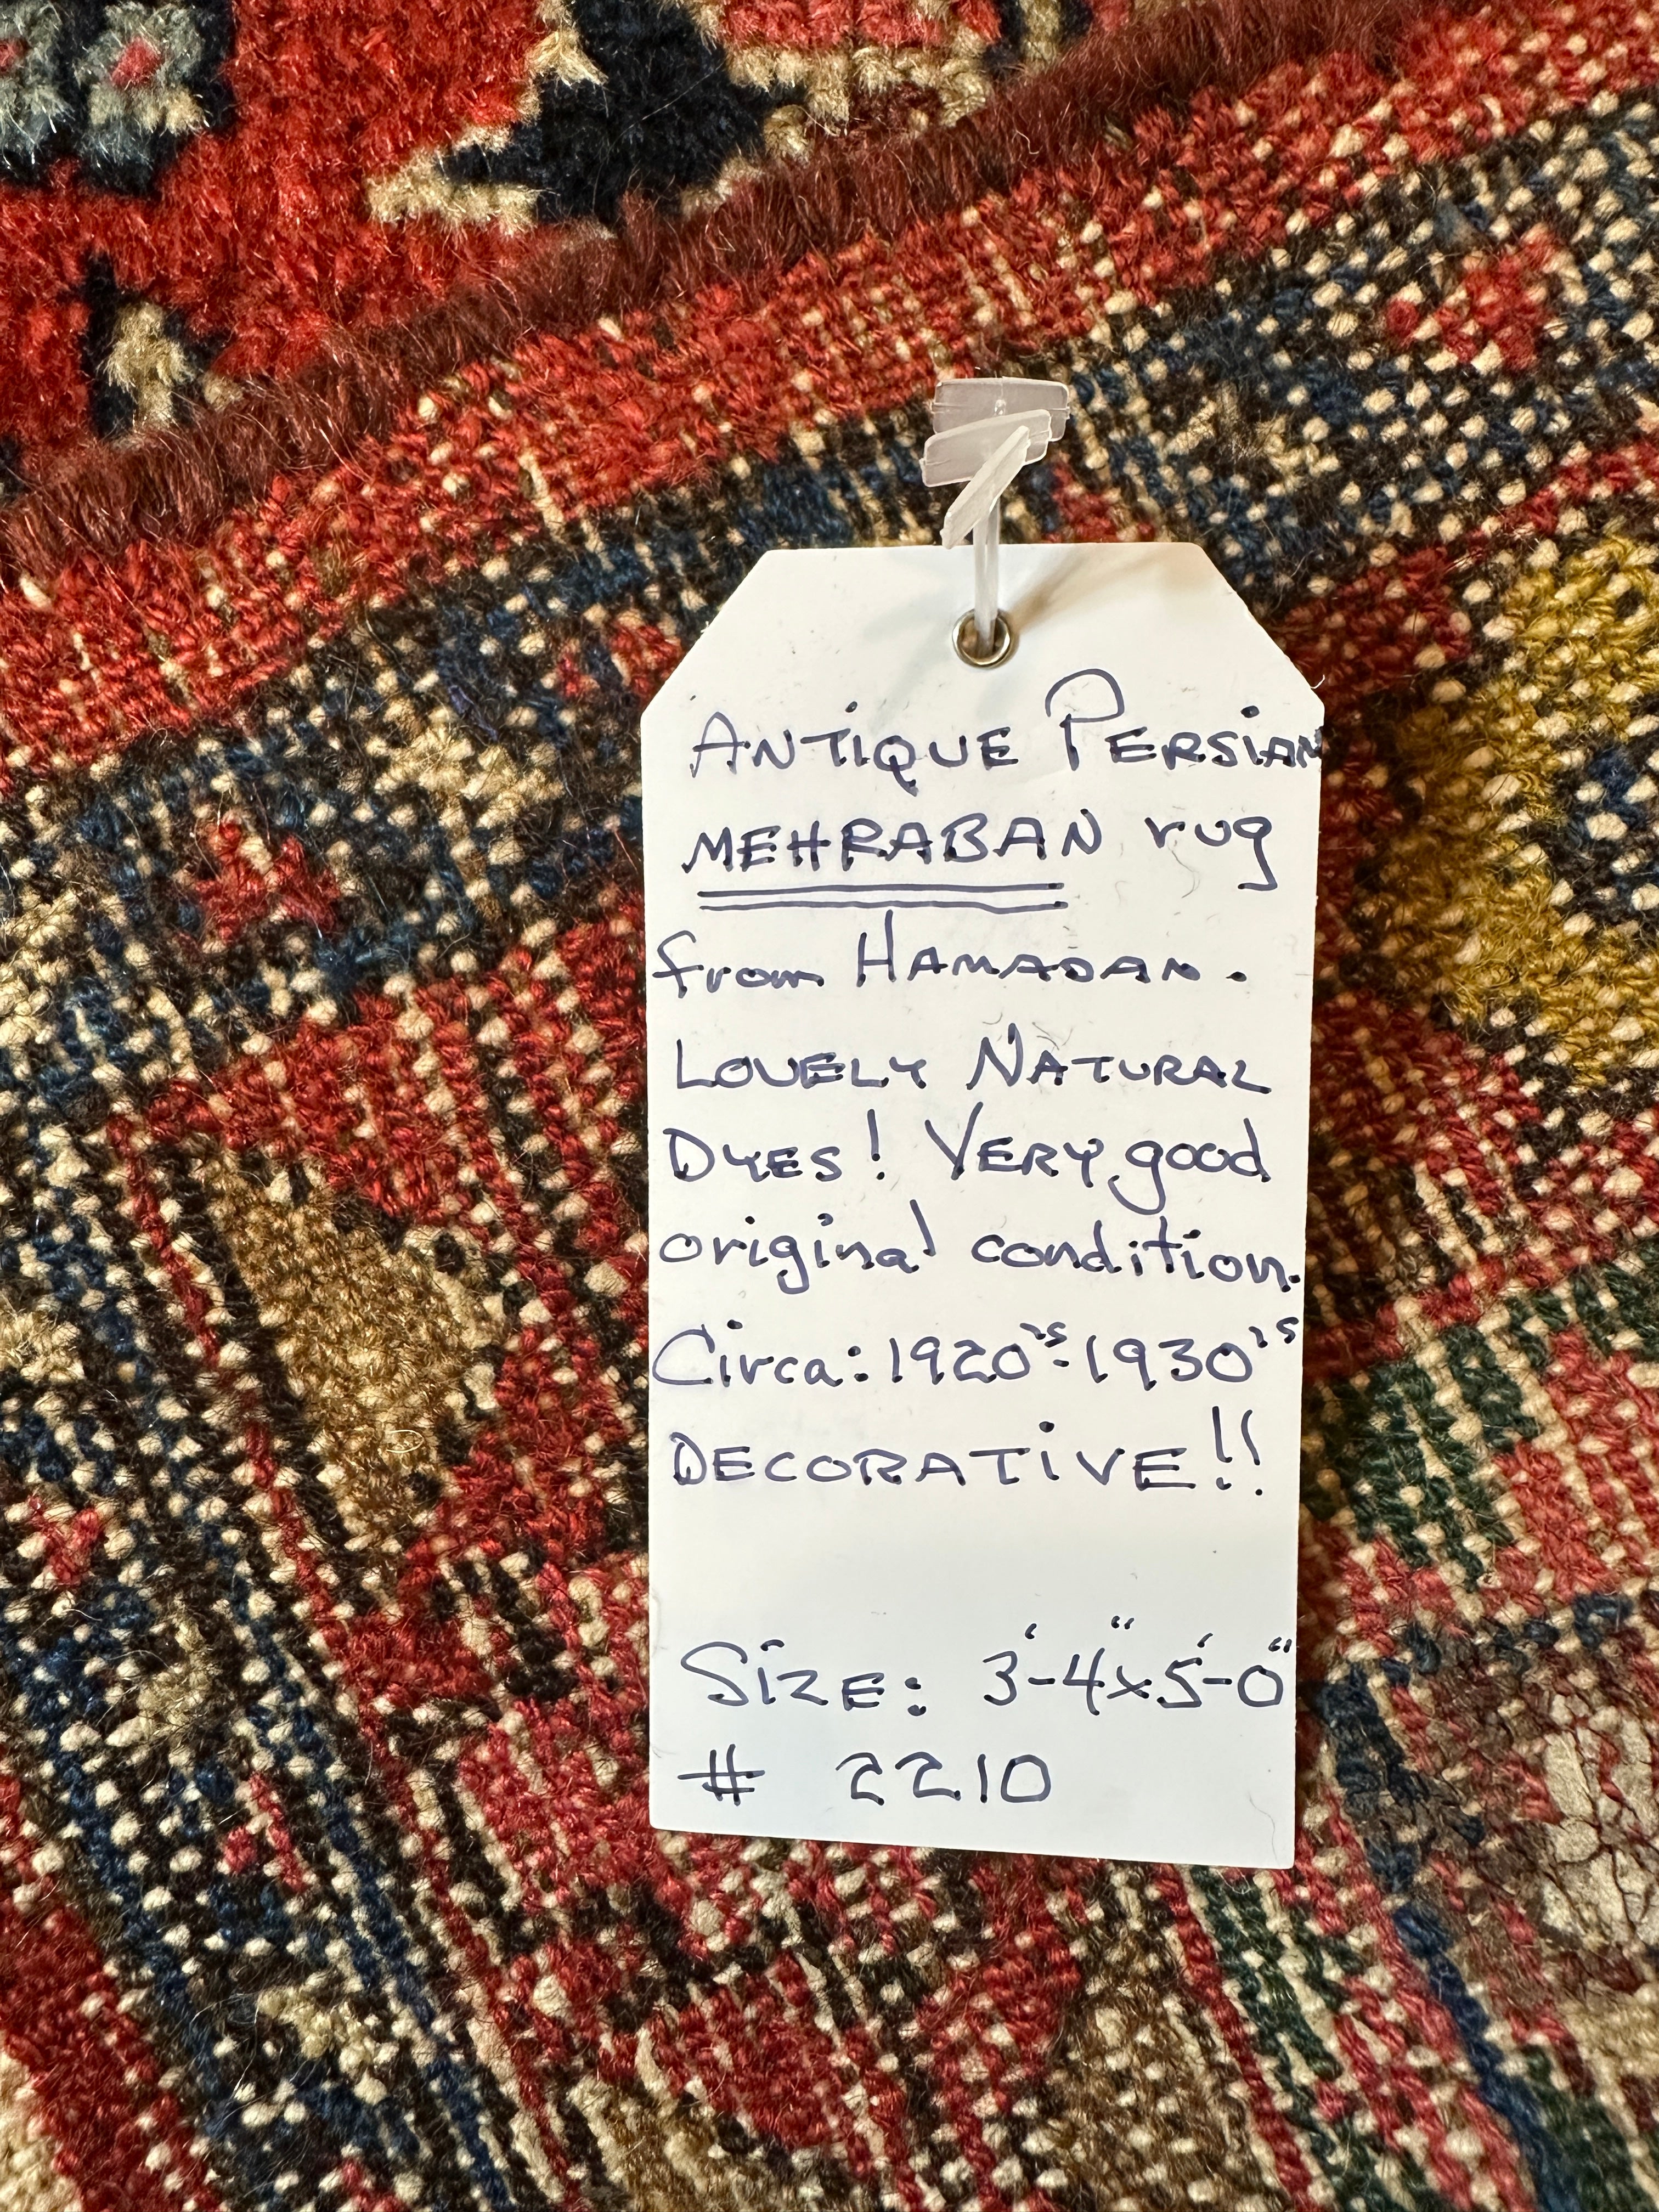 ANTIQUE PERSIAN
MEHRABAN rug
from HAMADAN.
LOVELY NATURAL
DYES! VERY good
original condition.
Circa: 1920's-1930's
DECORATIVE!!
SIZE: 3'-4"x5'-0"
# 2210